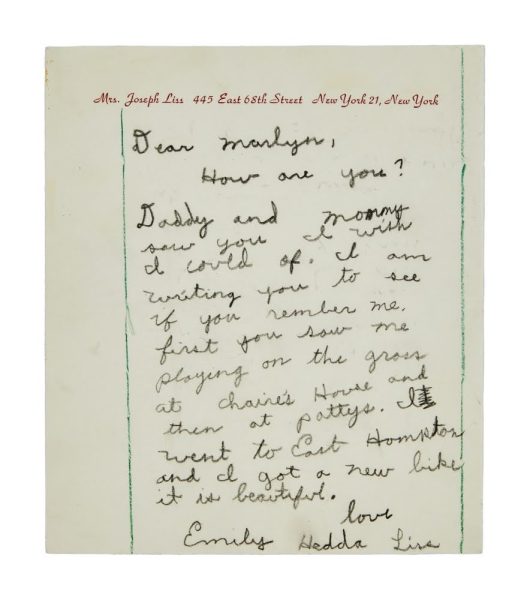 Mrs. Joseph Liss 445 East 68th Street New York 21, New York
Dear Marlyn,
How are you?
Daddy and mommy
saw you I wish
I could of. I am
writing you to see
if you rember me.
first you saw me
playing on the grass
at chaire's House and
then at pattys. I
went to East Hampton
and I got a new bike
it is beautiful.
love
Emily Hedda Liss